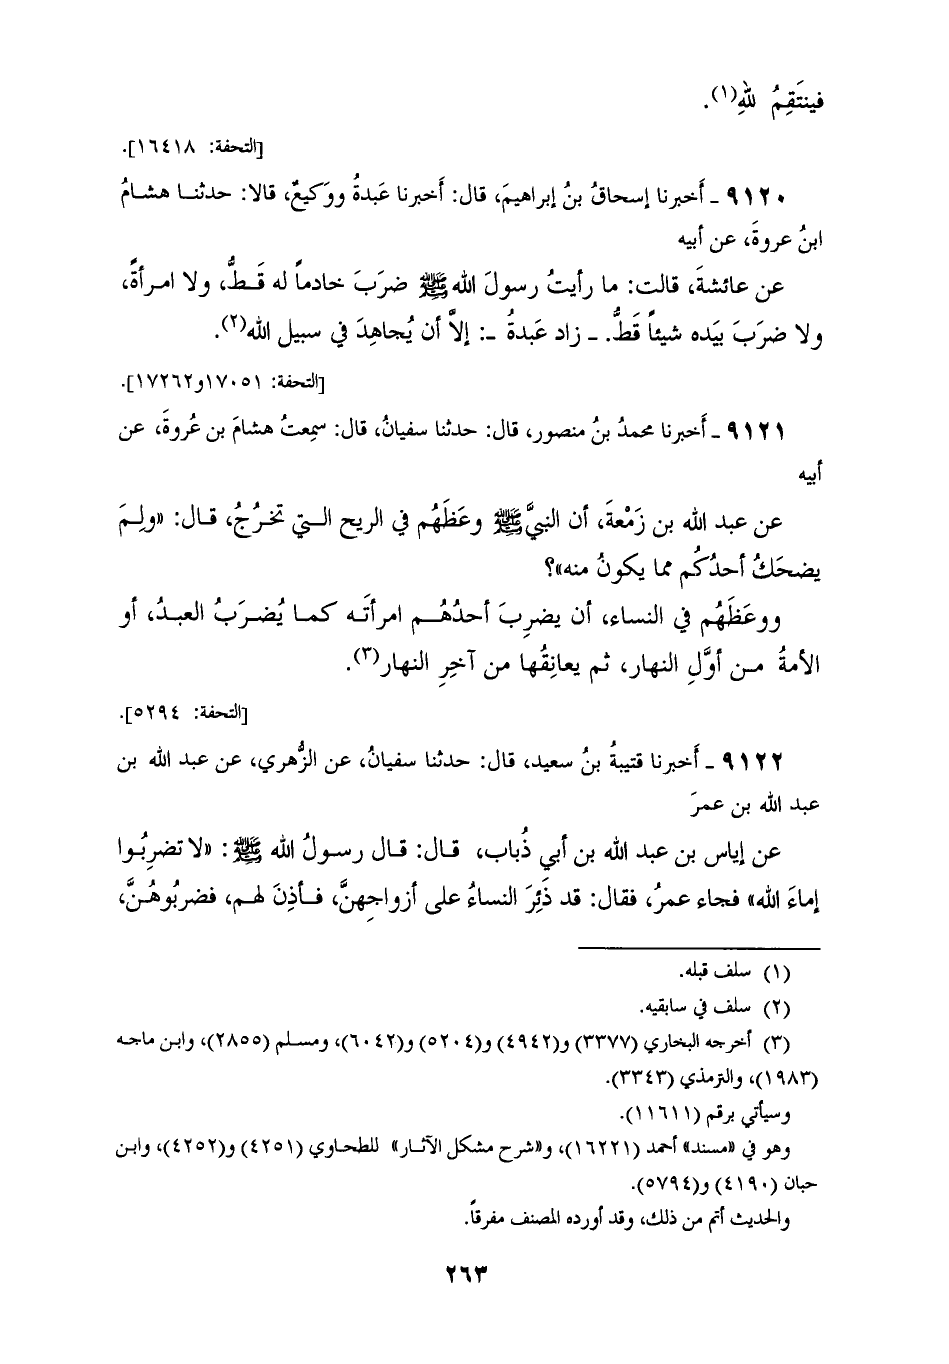 فينتَقِمُ للهِ(١).
[التحفة: ١٦٤١٨].
٩١٢٠ ـ أَخبرنا إسحاقُ بنُ إبراهيمَ، قال: أَخبرنا عَبدةُ ووَكيعٌ، قالا: حدثنـا هشـامُ
ابنُ عروةَ، عن أبيه
عن عائشةَ، قالت: ما رأيتُ رسولَ الله ﷺ ضرَبَ خادماً له قَـطُّ، ولا امـرأةً،
ولا ضرَبَ بيَده شيئاً قَطُّ. ـ زاد عَبدةُ ـ: إلاَّ أن يُجاهِدَ في سبيل الله(٢).
[التحفة: ١٧٠٥١ و١٧٢٦٢].
٩١٢١ ـ أَخبرنا محمدُ بنُ منصور، قال: حدثنا سفيانُ، قال: سمِعتُ هشامَ بن عُروةَ، عن
أبيه
عن عبد الله بن زَمْعةَ، أن النبيَّ ﷺ وعَظَهُم في الريح الـتي تخرُجُ، قـال: «ولِـمَ
يضحَكُ أحدُكُم مما يكونُ منه»؟
ووعَظَهُم في النساء، أن يضرِبَ أحدُهُـم امرأتَـه كمـا يُضـرَبُ العبـدُ، أو
الأمةُ مـن أوَّلِ النهار، ثم يعانِقُها من آخِرِ النهار(٣).
[التحفة: ٥٢٩٤].
٩١٢٢ ـ أَخبرنا قتيبةُ بنُ سعيد، قال: حدثنا سفيانُ، عن الزُّهري، عن عبد الله بن
عبد الله بن عمرَ
عن إياس بن عبد الله بن أبي ذُباب، قـال: قـال رسـولُ الله ﷺ: «لا تضرِبُـوا
إماءَ الله» فجاء عمرُ، فقال: قد ذَئِرَ النساءُ على أزواجِهنَّ، فـأذِنَ لهـم، فضربُوهُـنَّ،
(١) سلف قبله.
(٢) سلف في سابقيه.
(٣) أخرجه البخاري (٣٣٧٧) و(٤٩٤٢) و(٥٢٠٤) و(٦٠٤٢)، ومسـلم (٢٨٥٥)، وابـن ماجـه
(١٩٨٣)، والترمذي (٣٣٤٣).
وسيأتي برقم (١١٦١١).
وهو في «مسند» أحمد (١٦٢٢١)، و«شرح مشكل الآثـار» للطحاوي (٤٢٥١) و(٤٢٥٢)، وابـن
حبان (٤١٩٠) و(٥٧٩٤).
والحديث أتم من ذلك، وقد أورده المصنف مفرقاً.
٢٦٣